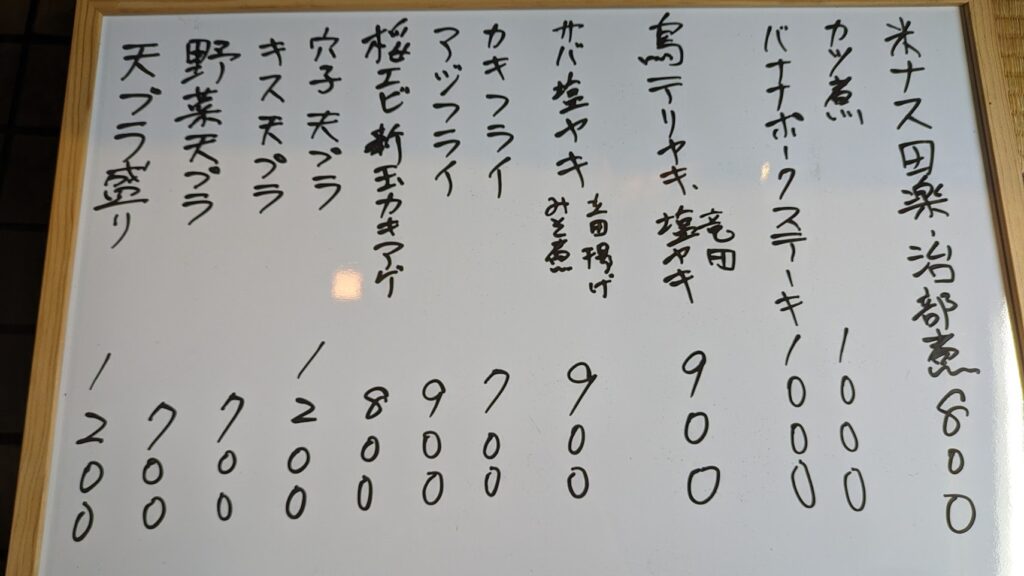 米ナス田楽・治部煮 800
カツ煮 1000
バナナポークステーキ 1000
鳥テリヤキ、塩ヤキ 竜田 900
サバ塩ヤキ 立田揚げ みそ煮 900
カキフライ 700
アヅフライ 900
桜エビ新玉カキアゲ 800
穴子天プラ 1200
キス天プラ 700
野菜天プラ 700
天プラ盛り 1200